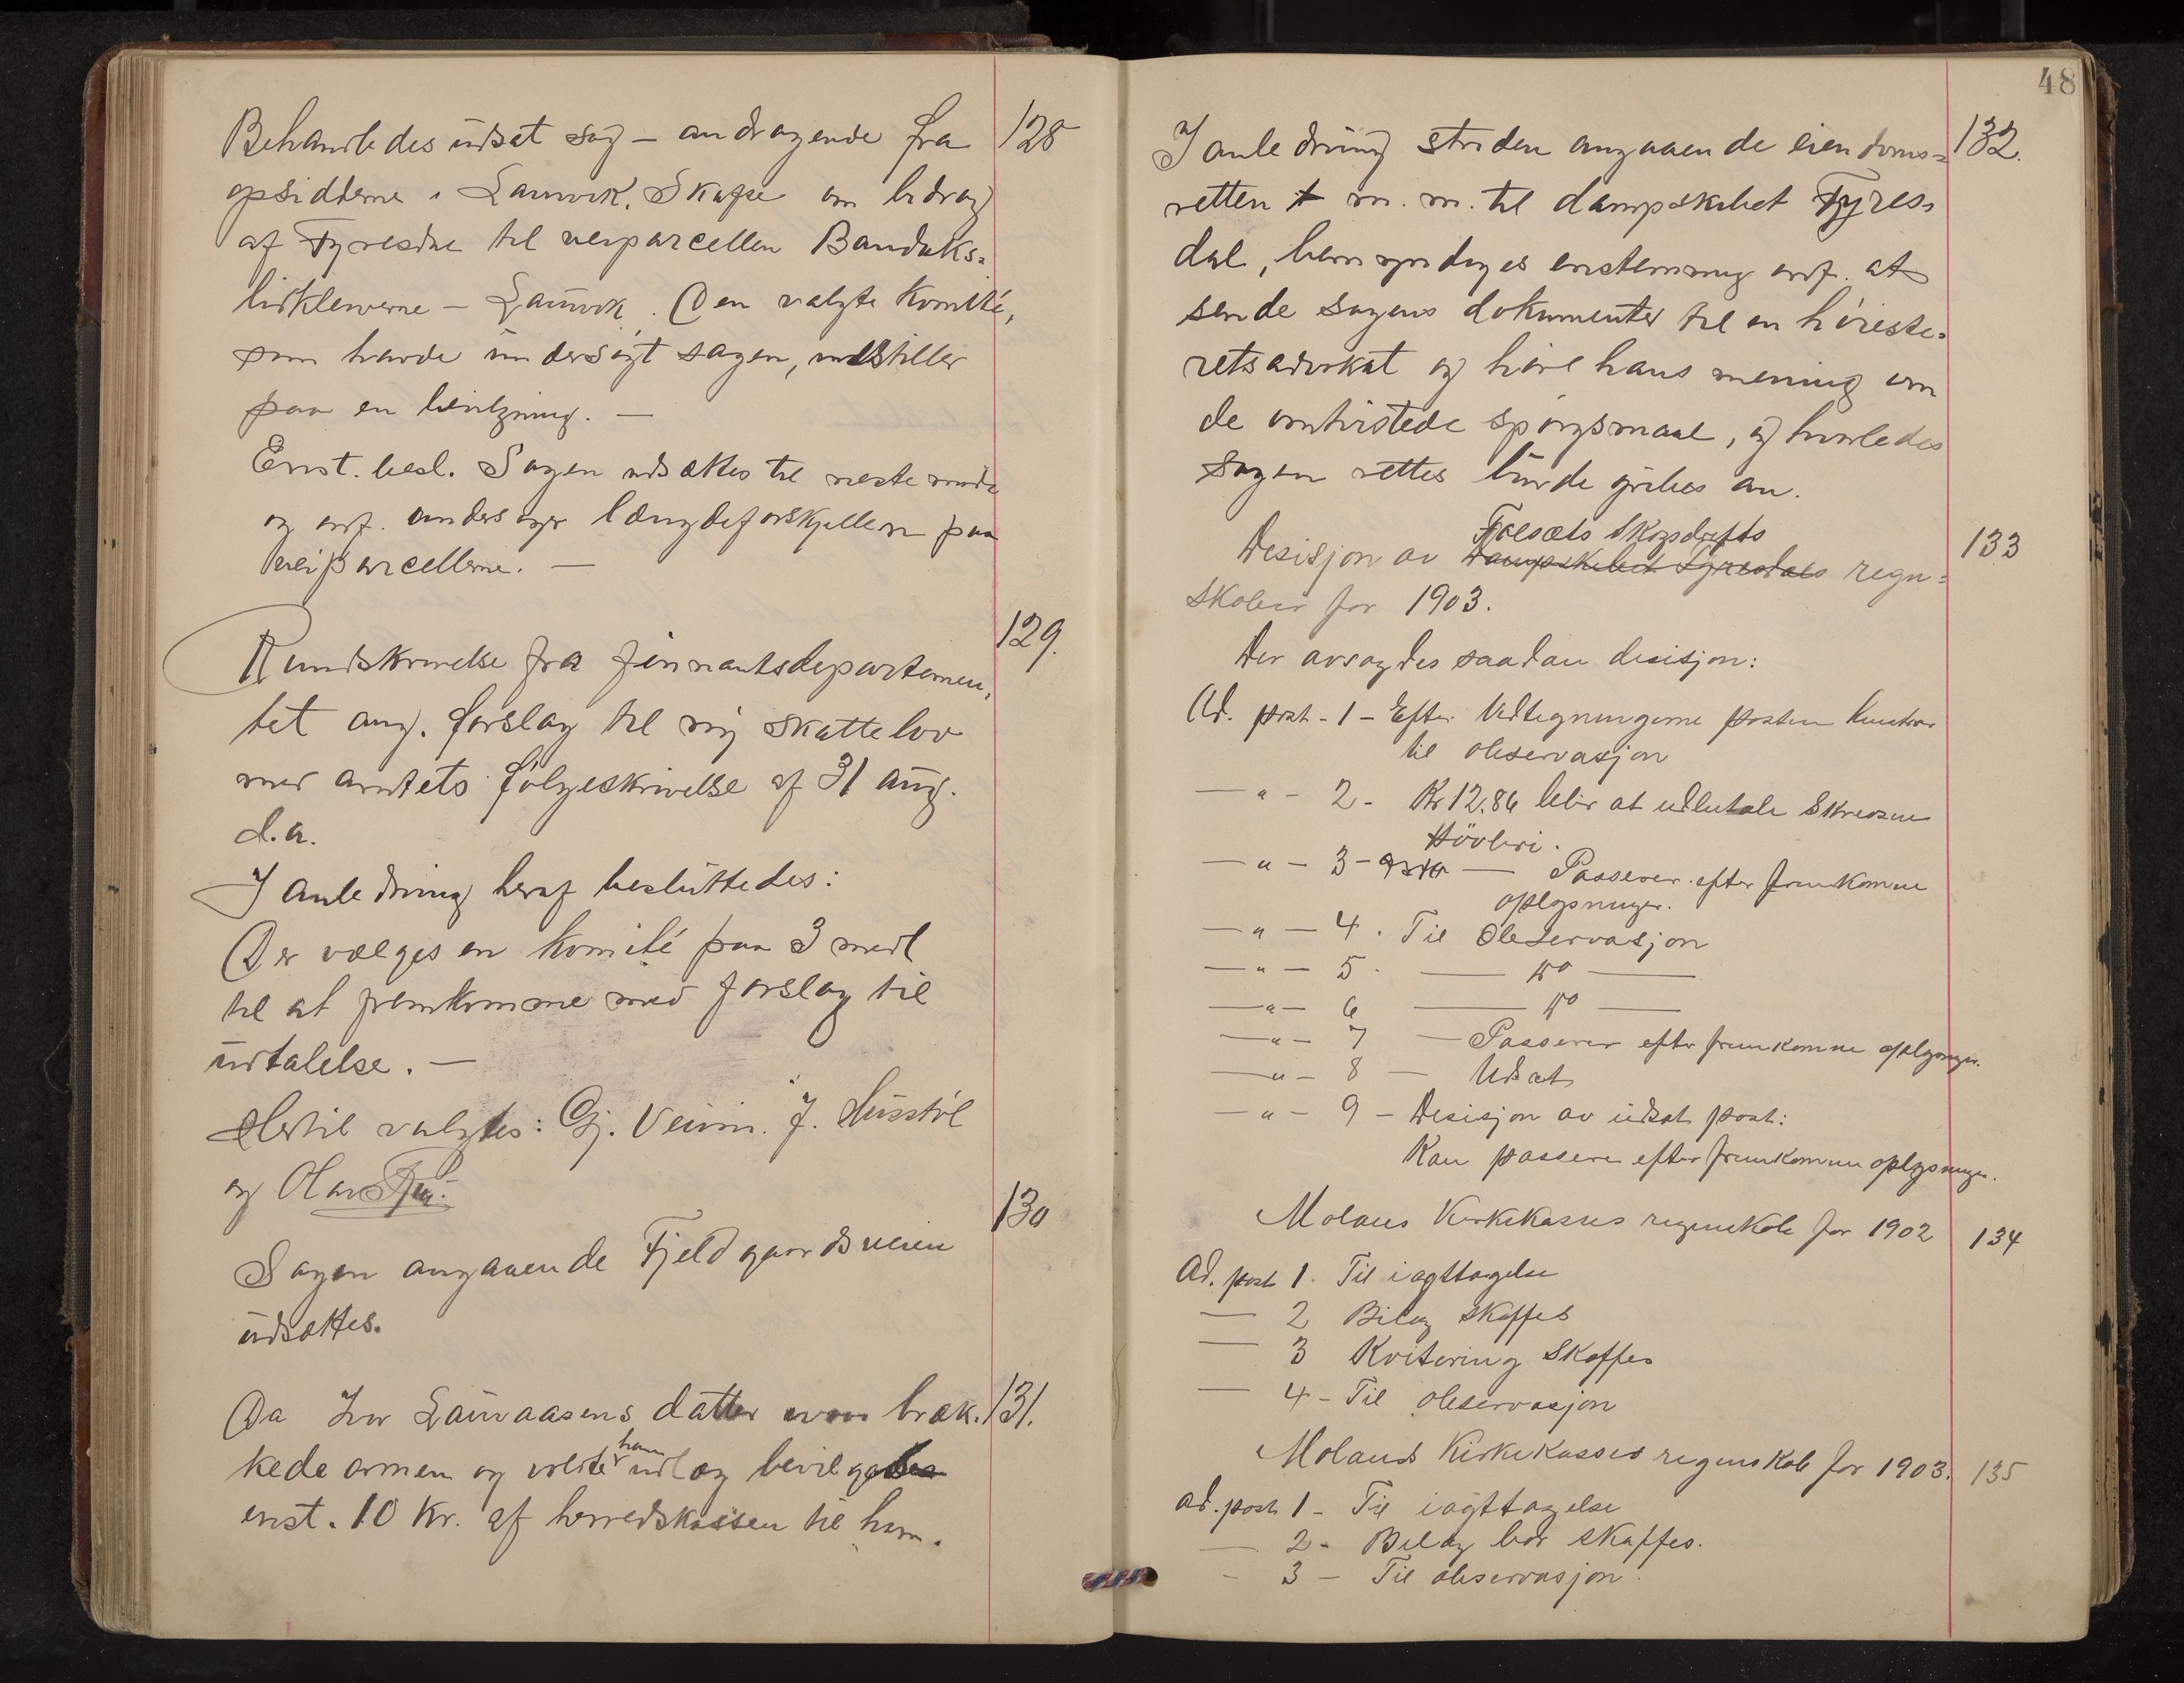 128
Behandledes udsat sag – andragende fra
opsidderne i Lauvvik, Skafse om bidrag
af Tyresdne til veiparcellen Bandaks-
lidklevverne – Lauvvik. Den valgte komité,
som havde undersøgt sagen, indstiller
paa en bevilgning. –
Enst. besl. Sagen udsættes til næste møde
og ordf. undersøger længdeforskjellem paa
veiparcellerne. –
129.
Rundskrivelse fra finnantsdepartemen,
tet ang. forslag til ny skattelov
med amtets følgeskrivelse af 31 aug.
d.a.
I anledning heraf besluttedes:
Der vælges en komité paa 3 medl
til at fremkomme med forslag til
udtalelse. –
Hertil valgtes: Gj. Veum. J. Husstøl
og Olav
130
Sagen angaaende Fjeldgaardsveien
udsættes.
131.
Da Ivor Lauvaasens datter bræk.
kede armen og voldte ham udlæg bevilgedes
enst. 10 Kr. af herredskassen til ham.
48
132.
I anledning striden angaaende eiendoms=
retten t m. m. til dampskibet Tyres,
dal, bemyndiges enstemmig ordf. at
sende sagens dokumenter til en høieste=
retsadvokat og høre hans mening om
de omtvistede spørgsmaal, og hvorledes
sagen rettes burde gribes an.
133
Desisjon av Dampskibet Tyresdals Foesæts Skogsdrifts regn=
skaber for 1903.
Der avsagdes saadan desisjon:
Ad. post - 1 - Efter Udtegningerne posten
til observasjon
— " - 2 - Kr 12.86 blir at udbetale
Hövleri.
— " - 3 - — Passerer efter fremkomne
oplysninger.
— " — 4. Til Observasjon
— " — 5. — do —
— " — 6 — do —
— " — 7 — Passerer efter fremkomne oplysninger.
— " - 8 — Udsat
— " - 9 - Desisjon av udsat post:
Kan passere efter fremkomne oplysninger.
134
Molans Kirkekasses regnskab for 1902
Ad. post 1. Til iagttagelse
— 2 Bilag skaffes
— 3 Kvitering Skaffes
— 4 - Til observasjon
135
Molands Kirkekasses regnskab for 1903.
ad. post 1 - Til iagttagelse
— 2 - Bilag bør skaffes.
- 3 - Til observasjon.